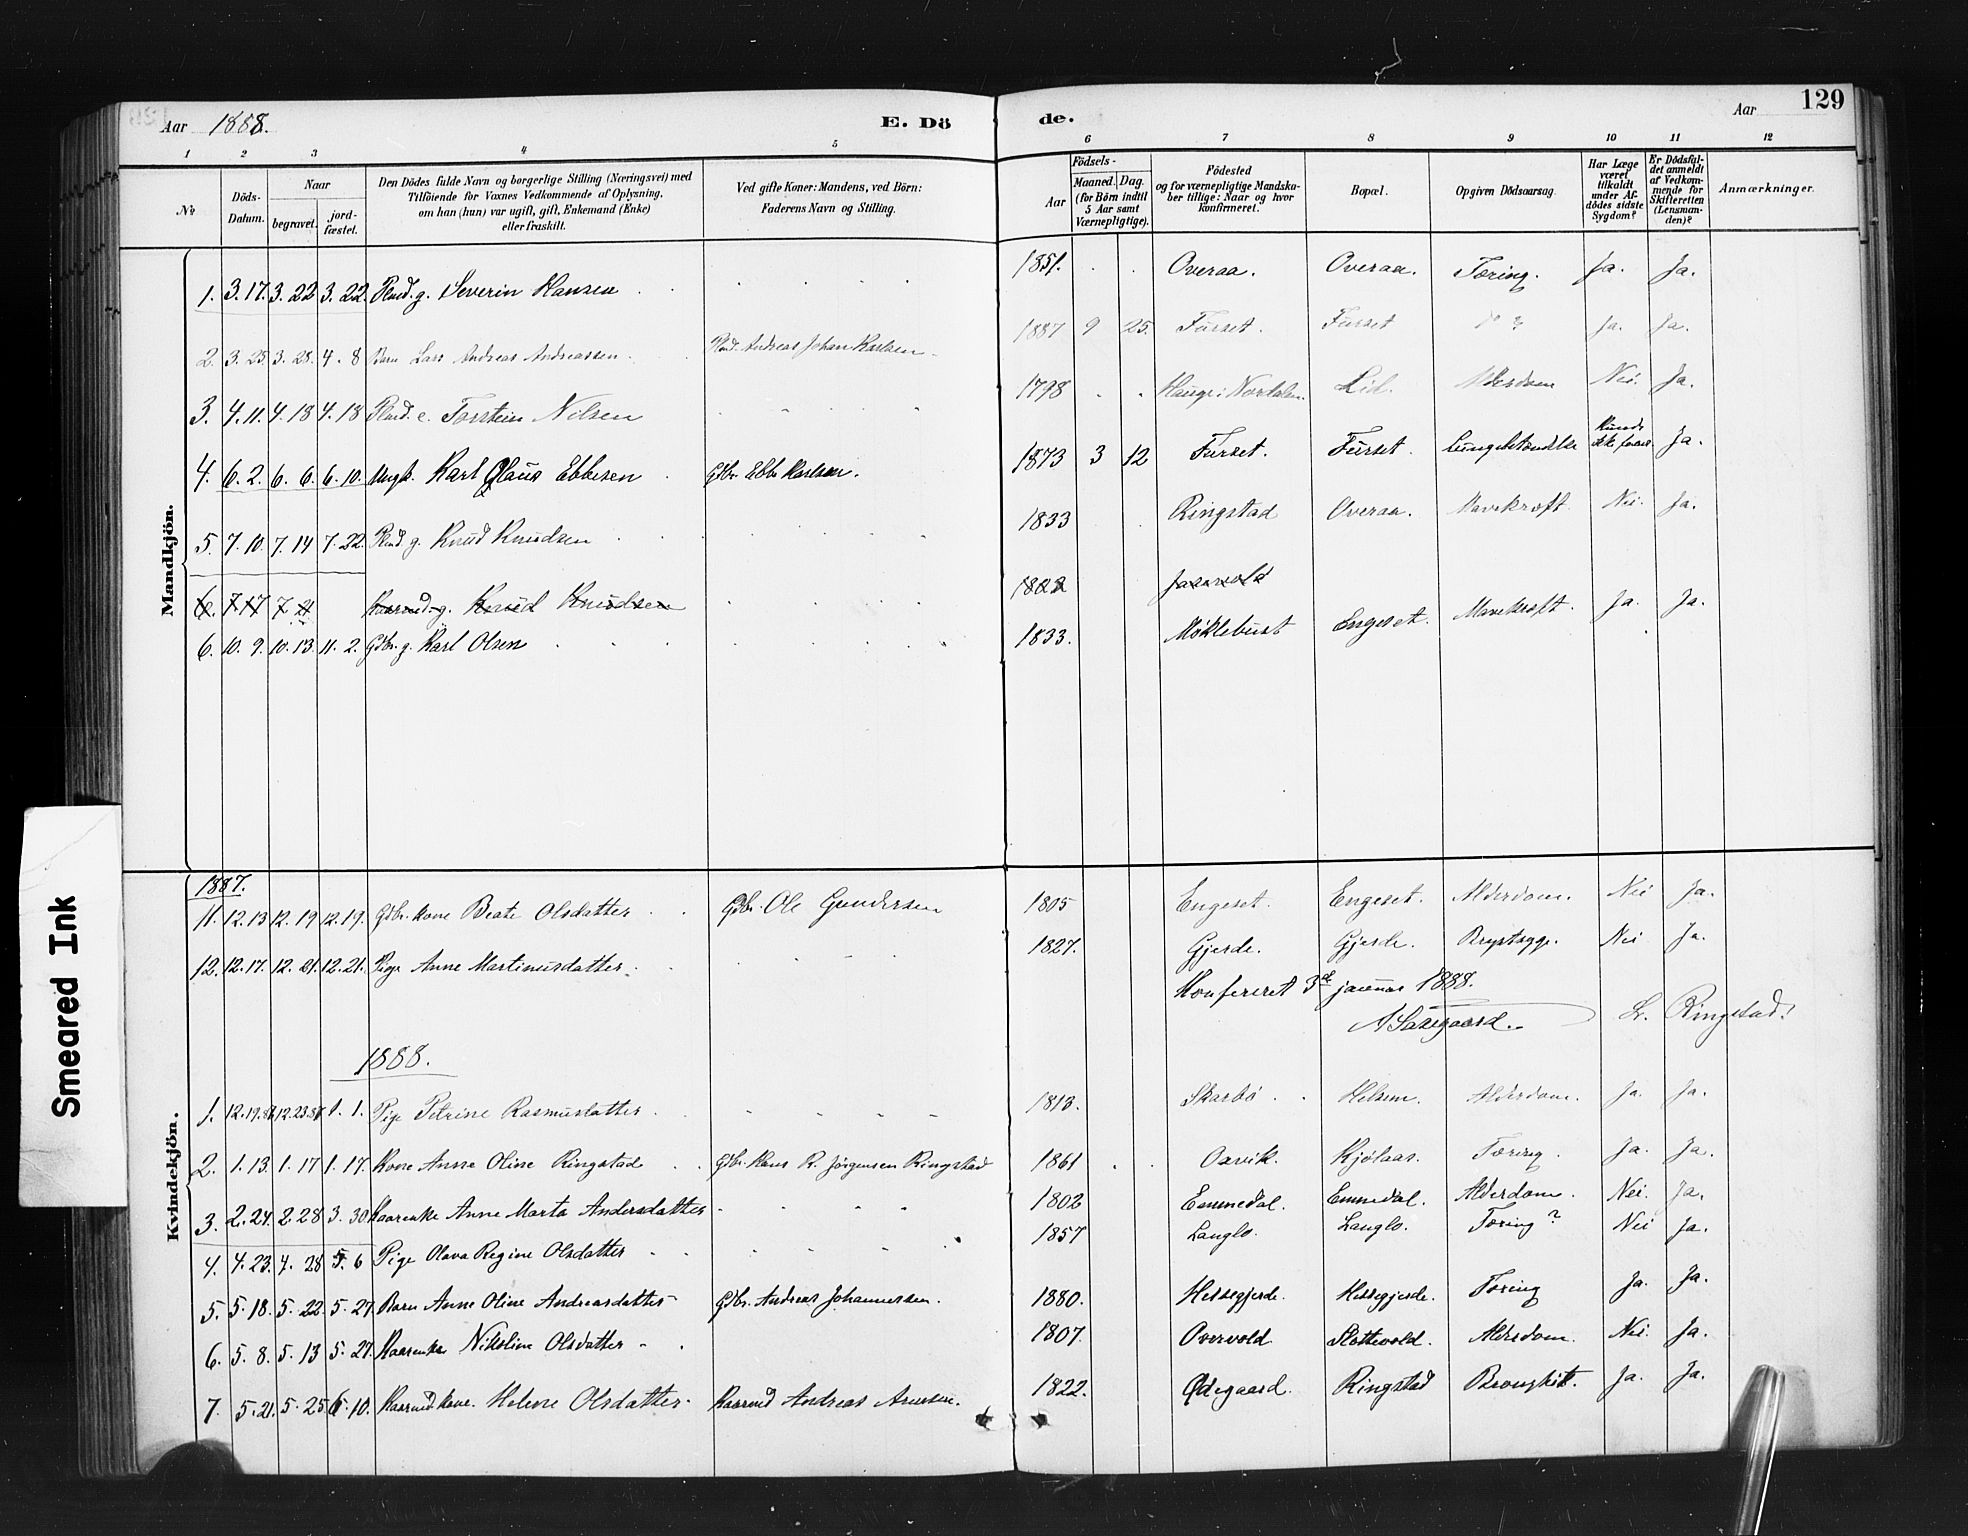 Aar 1888.
E. Dö
de.
Aar 129
1 2 3 4 5 6 7 8 9 10 11 12
No
Döds-Datum.
Naar
begravet.
jord-fæstet.
Den Dödes fulde Navn og borgerlige Stilling (Næringsvei) med
Tilföiende for Voxnes Vedkommende af Oplysning,
om han (hun) var ugift, gift, Enkemand (Enke)
eller fraskilt.
Ved gifte Koner: Mandens, ved Börn:
Faderens Navn og Stilling.
Födsels-
Aar
Maaned. Dag.
(for Börn indtil
5 Aar samt
Værnepligtige).
Födested
og for værnepligtige Mandska-
ber tillige: Naar og hvor
konfirmeret.
Bopæl.
Opgiven Dödsaarsag.
Har Læge
været
tilkaldt
under Af-
dödes sidste
Sygdom?
Er Dödsfal-
det anmeldt
af Vedkom-
mende for
Skifteretten
(Lensman-
den)?
Anmærkninger.
Mandkjön.
1. 3. 17. 3. 22 3. 22. Plmd. g. Severin Hansen 1851. Overaa. Overaa. Tæring. Ja. Ja.
2. 3. 25. 3. 28. 4. 8 Barn Lars Andreas Andreassen Plmd. Andreas Johan Karlsen 1887 9 25. Furset. Furset do ? Ja. Ja.
3. 4. 11. 4. 18 4. 18 Plmd. e. Torstein Nilsen 1798 Hauge i Nordalen. Lid. Alderdom Nei. Ja.
4. 6. 2. 6. 6. 6. 10. Ungk. Karl Olaus Ebbesen Gdbr. Ebbe Karlsen. 1873 3 12 Furset. Furset. Lungebetændelse Kunde ikke faaes. Ja.
5. 7. 10. 7. 14 7. 22. Plmd. g. Knud Knudsen 1833 Ringstad Overaa. Mavekræft. Nei. Ja.
6. 7. 17 7. 21 Kaarmd. g. Knud Knudsen 1822
6. 10. 9. 10. 13 11. 2. Gdbr. g. Karl Olsen 1833. Møklebust Engeset. Mavekræft. Ja. Ja.
Kvindekjön.
1887.
11. 12. 13 12. 19 12. 19. Gdbr. Kone Beate Olsdatter Gdbr. Ole Gundersen 1805 Engeset. Engeset. Alderdom. Nei Ja.
12. 12. 17. 12. 21. 12. 21. Pige Anne Martinusdatter 1827. Gjerde. Gjerde. Brystsyge. Nei Ja.
Konfereret 3die januar 1888.
A Saxegaard. L. Ringstad.
1888.
1. 12. 19. 87 12. 23. 87 1. 1. Pige Petrine Rasmusdatter 1813. Skarbö Helsem. Alderdom. Ja. Ja.
2. 1. 13. 1. 17 1. 17. Kone Anne Oline Ringstad Gdbr. Hans R. Jörgensen Ringstad 1861 Oxvik. Kjölaas. Tæring. Ja. Ja.
3. 2. 24. 2. 28 3. 30 Kaarenke Anne Marta Andersdatter 1802 Emmedal. Emmedal. Alderdom. Nei. Ja.
4. 4. 23. 4. 28 5. 6 Pige Olava Regine Olsdatter 1857 Langlo. Langlo. Tæring? Nei Ja.
5. 5. 18. 5. 22 5. 27 Barn Anne Oline Andreasdatter Gdbr. Andreas Johannessen. 1880. Hessegjerde. Hessegjerde. Tæring Ja. Ja.
6. 5. 8. 5. 13 5. 27. Kaarenke Nikoline Olsdatter 1807. Overvold Slettevold. Alderdom. Nei. Ja.
7. 5. 21. 5. 25 6. 10. Kaarmd kone. Helene Olsdatter Kaarmd Andreas Arnesen. 1822. Ødegaard. Ringstad Bronshit. Ja. Ja.
Smeared Ink